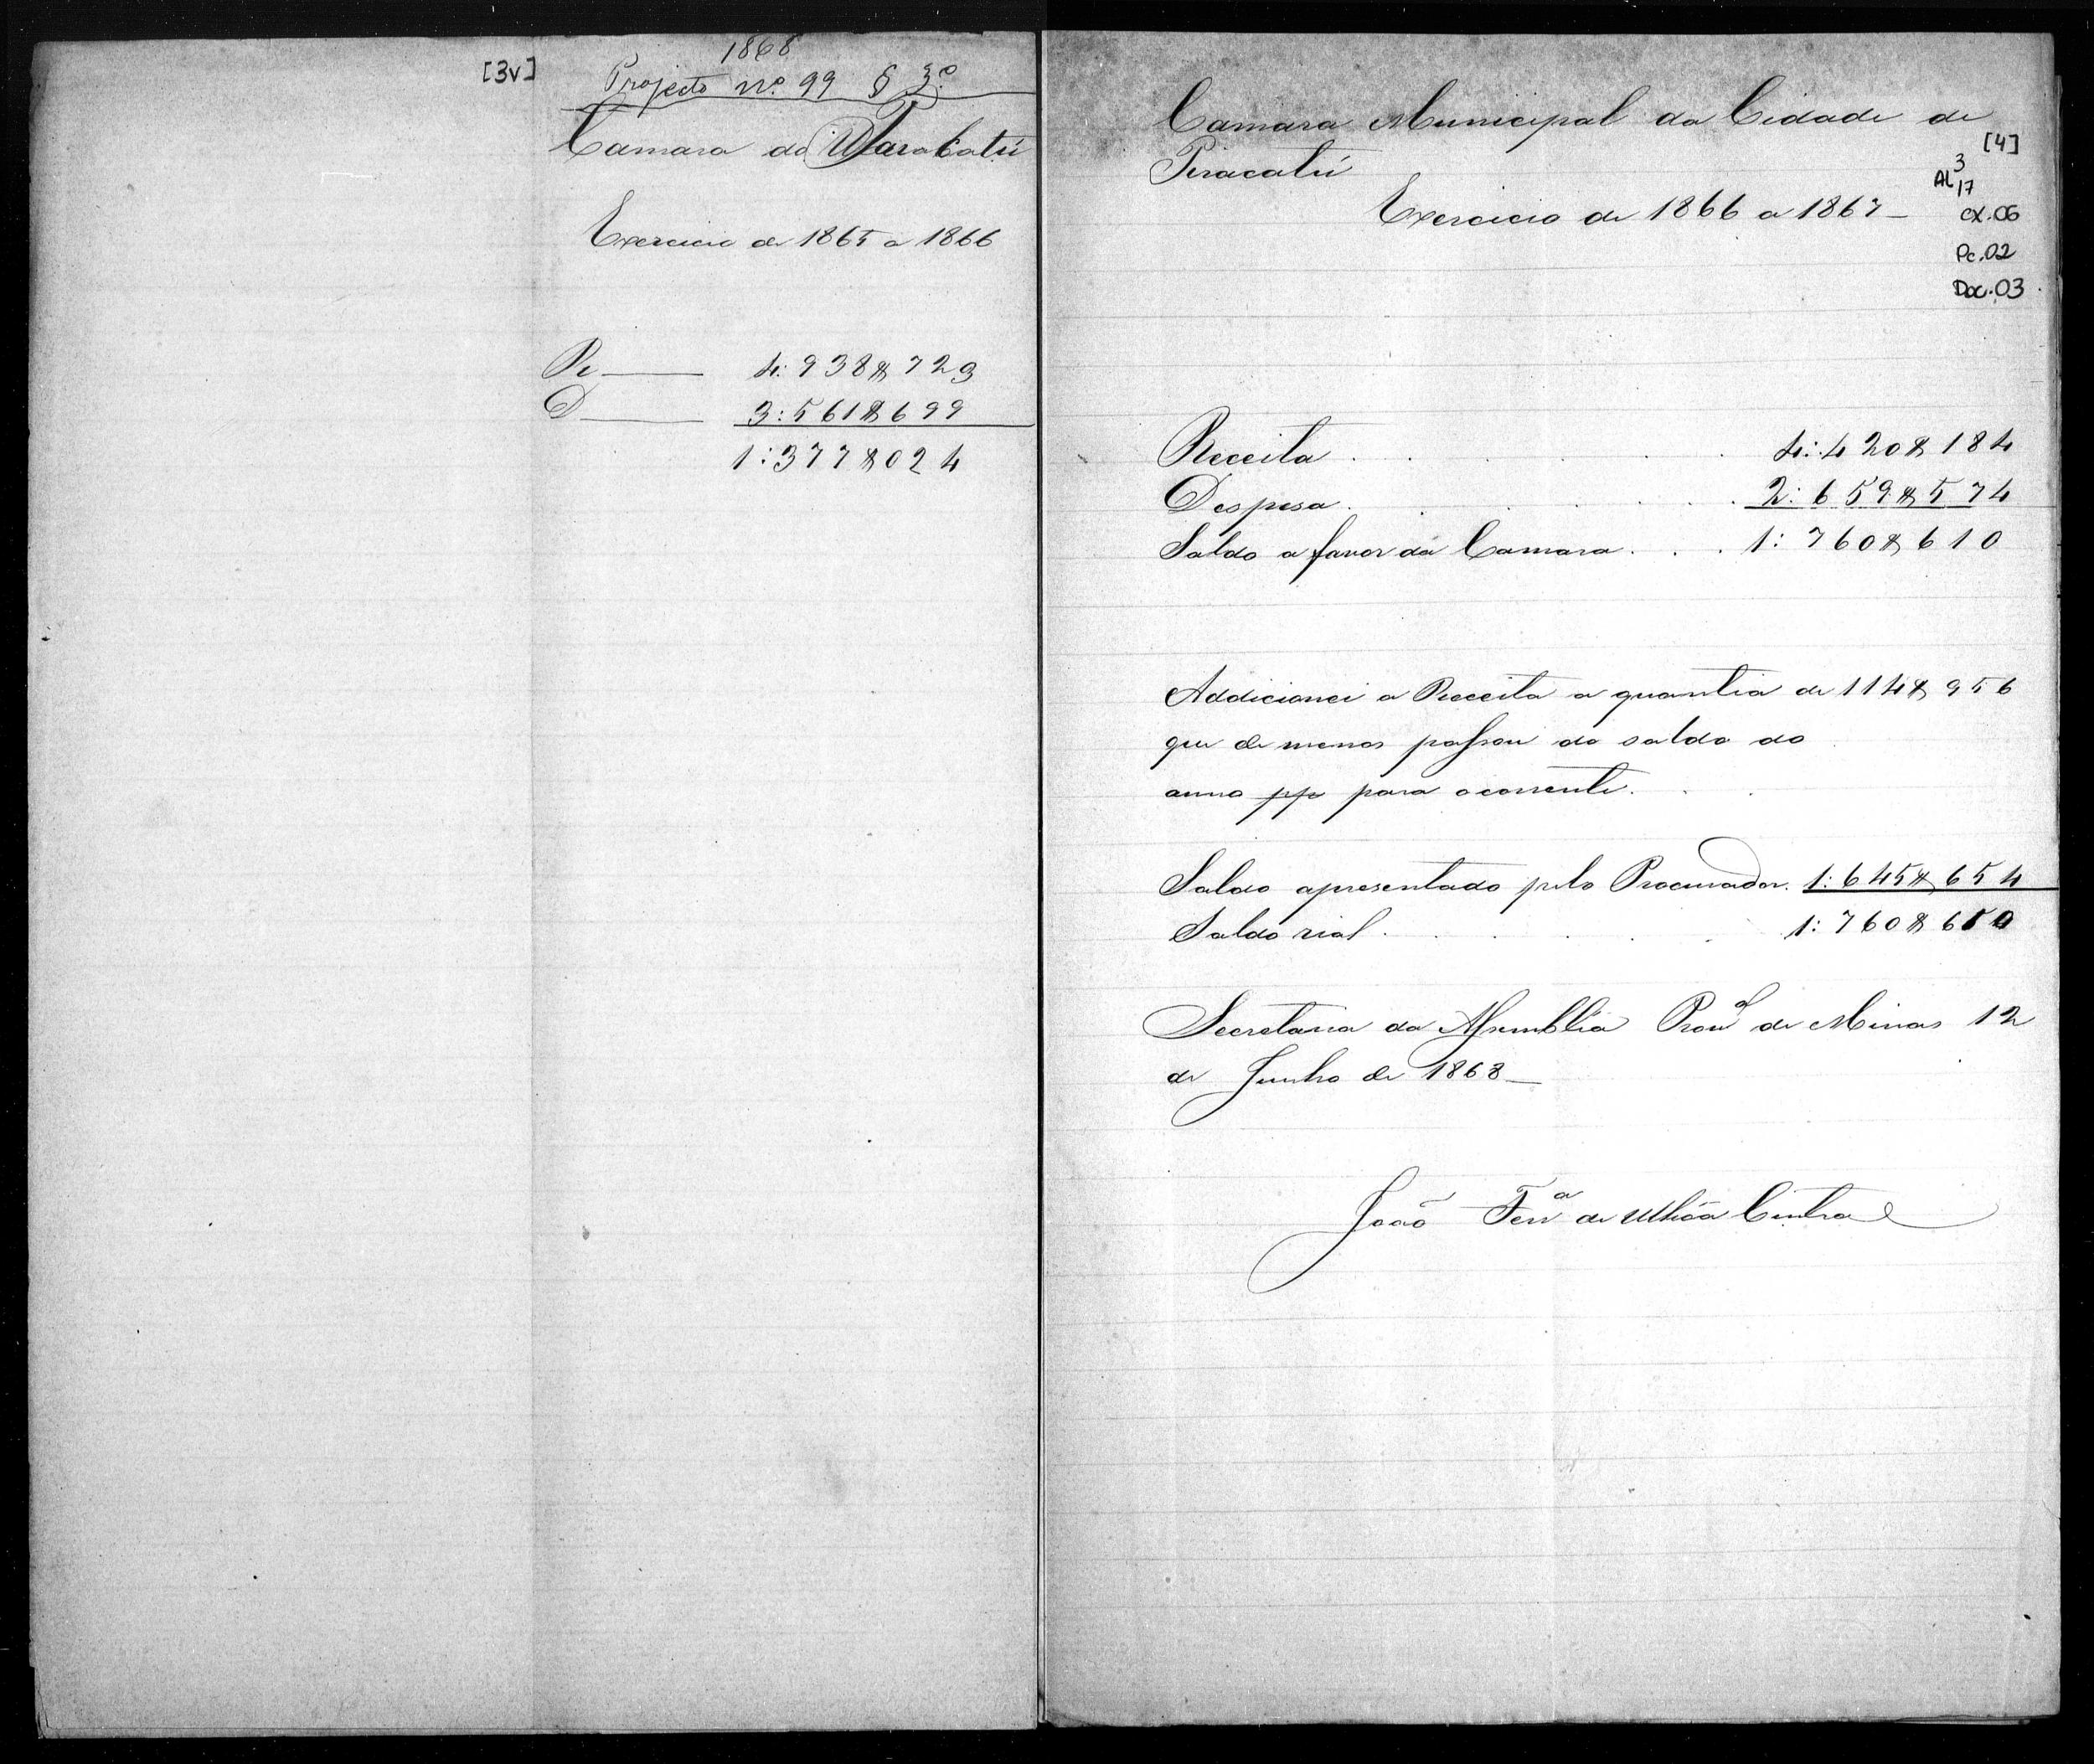 [3v]
1868
Projecto nº 99 § 3º
Camara do
Exercicio de 1865 a 1866
Re 4:938$723
D 3:561$699
1:377$024
Camara Municipal da Cidade de
[4]
Piracatú
AL 3
17
Exercicio de 1866 a 1867
CX.06
Pc.02
Doc.03
Receita . . . . . . 4:420$184
Despesa . . . . . . 2:659$574
Saldo a favor da Camara . . . 1:760$610
Addicionei a Receita a quantia de 114$956
que de menos passou do saldo do
anno pp para o corrente.
Saldo apresentado pelo Procurador. 1:645$654
Saldo rial . . . . . 1:760$610
Secretaria da Assemblia Provˡ de Minas 12
de Junho de 1868
João Ferrª de Ulhôa Cintra